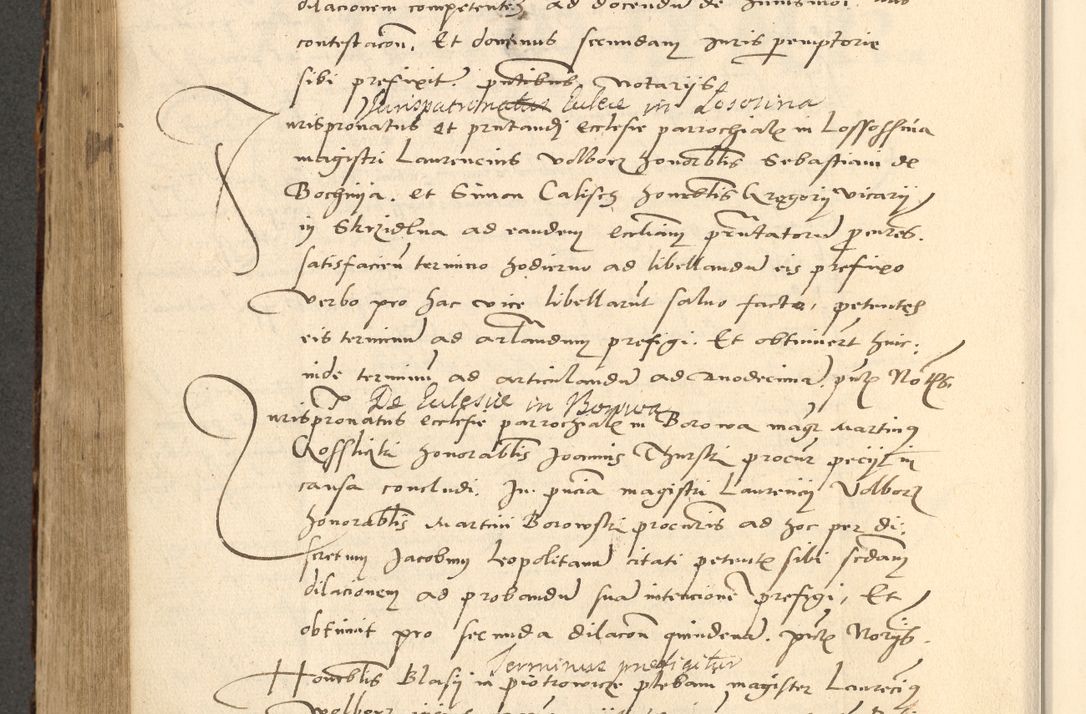 dilacionem competenten ad docendum de
contestacon. Et dominus secundam iuris peremptorie
sibi prefixit. pntibus notarijs
Jurispatronatus Eulesie in Lososina
Jurispronatus et pntandi ecclesie parrochialis in Lossossina
magistri Laurencius Volborz honorablis Sebastiani de
Bochnija. et Simon Calisch honorablis Gregorij vicarij
in Skrzidlna ad eandem eccliam pntatorum procures.
satisfacien termino hodierno ad libellandum eis prefixo
verbo pro hac vice libellarunt saluo facto, petentes
eis terminum ad arlandum prefigi. Et obtinuert hinc
inde terminum ad articulandum ad duodecimam, pntx Notarijs.
De Eulesie in Borowa
Jurispronatus ecclesie parrochialis in Borowa magr Martinus
Rossliczki honorablis Joannis Thurski procur pecijt in
causa concludi. In pncia magistri Laurencij Volborz
honorablis Martini Borowski procuris ad hoc per di
scretum Jacobum Leopolitanum citati petentx sibi secdam
dilacionem ad probandum sua intencione prefigi, Et
obtinuit pro secunda dilacon quindenam. pntx Notrijs.
Terminus prefigitur
Honorablis Blasij in Piotrowicze plebani magister Laurecius
Volborz